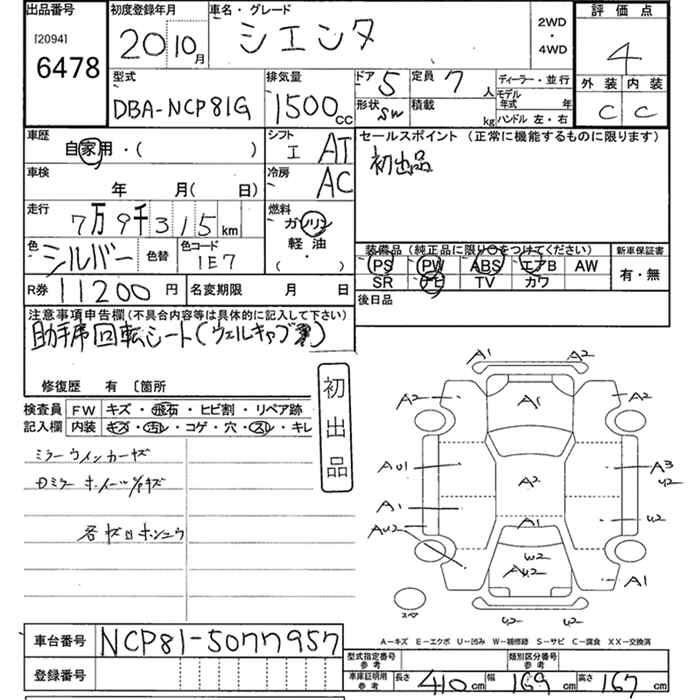 出品番号 初度登録年月 車名・グレード 2WD・4WD 評価点
[2094] 6478 20 10月 シエンタ 4
型式 排気量 ドア 5 定員 7人 ディーラー・並行 外装 内装
DBA-NCP81G 1500cc 形状 SW 積載 kg モデル年式 年 ハンドル 左・右 C C
車歴 自家用・( ) シフト I AT セールスポイント (正常に機能するものに限ります)
車検 年 月( 日) 冷房 AC 初出品
走行 7万9千315km 燃料 ガソリン
色 シルバー 色替 色コード 1E7 軽油 ( ) 装備品(純正品に限り○をつけてください) 新車保証書
PS PW ABS エアB AW 有・無
R券 11200円 名変期限 月 日 SR ナビ TV カワ
注意事項申告欄(不具合内容等は具体的に記入して下さい) 後日品
助手席回転シート(ウェルキャブ)
修復歴 有 〔箇所
検査員 FW キズ・飛石・ヒビ割・リペア跡
記入欄 内装 キズ・汚レ・コゲ・穴・スレ・キレ
初出品
ミラーウインカーキズ
Dミラー ホイールキズ
A1 A2
A2 A1 A2
AU1 A2 A3 U2
A1 A1 U2
AU2 W2
AU2 A1
スペ U2 U2
A-キズ E-エクボ U-凹み W-補修跡 S-サビ C-腐食 XX-交換済
車台番号 NCP81-5077957
型式指定番号 参考 類別区分番号 参考
登録番号 車庫証明用 参考 長さ 410cm 幅 169cm 高さ 167cm